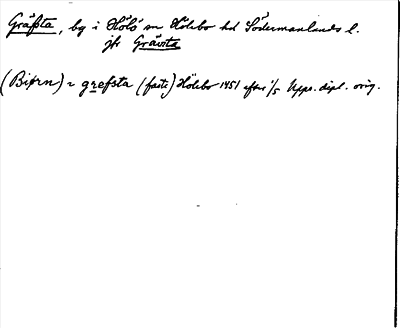 Gräfsta, by i Hölö sn Hölebo hd Södermanlands l.
jfr Grävsta
(Biørn) i grefsta (faste) Hölebo 1451 efter 1/5 Upps. dipl. orig.